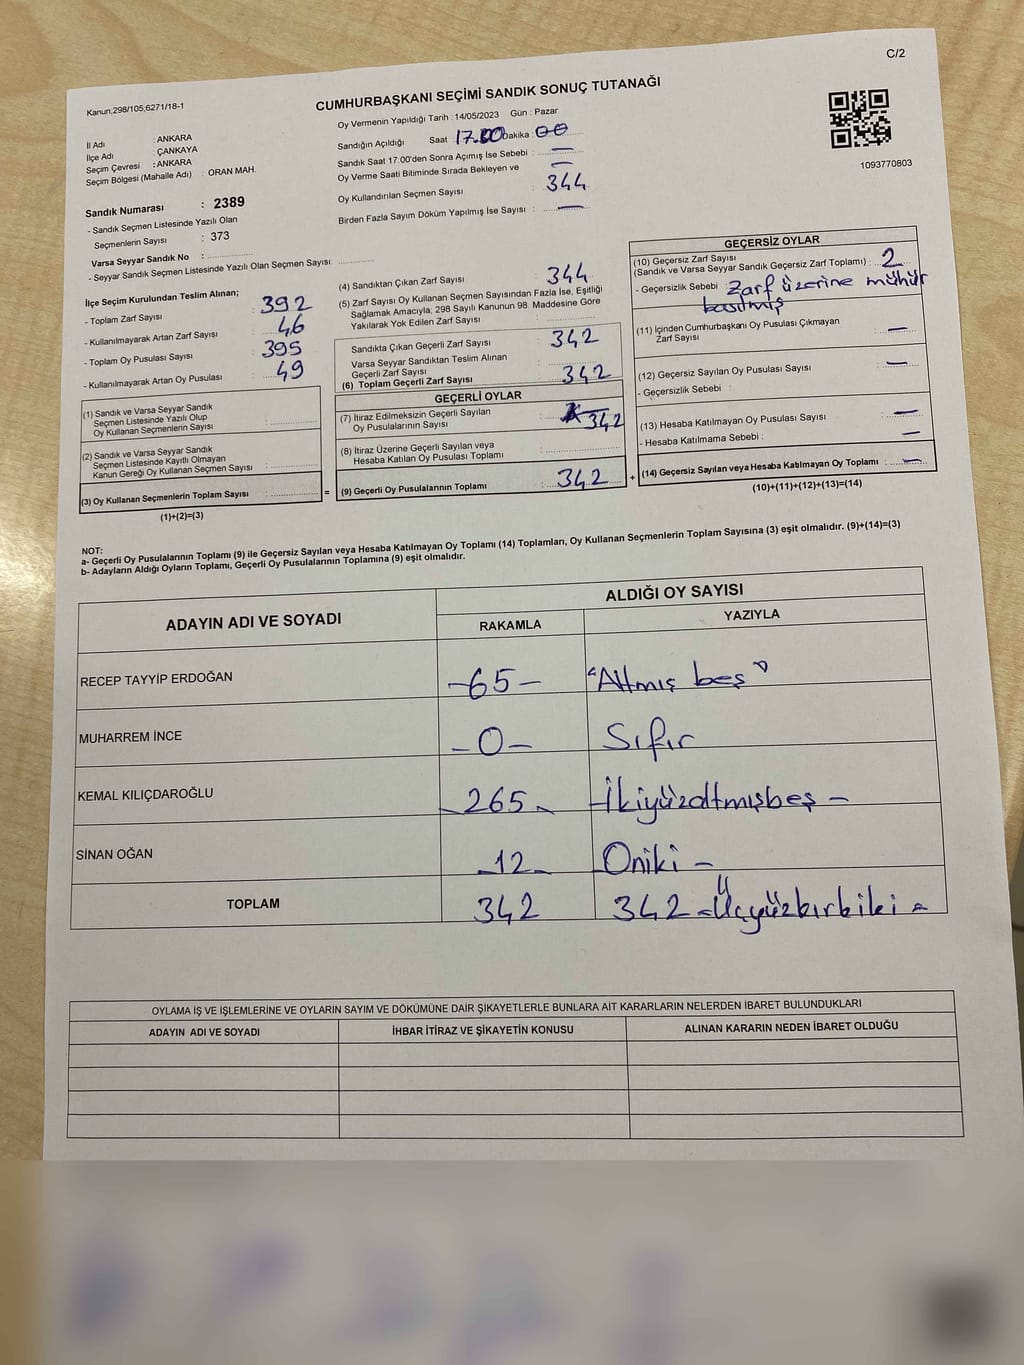 C/2
Kanun;298/105;6271/18-1
CUMHURBAŞKANI SEÇİMİ SANDIK SONUÇ TUTANAĞI
1093770803
İl Adı : ANKARA
İlçe Adı : ÇANKAYA
Seçim Çevresi : ANKARA
Seçim Bölgesi (Mahalle Adı) : ORAN MAH.
Sandık Numarası : 2389
- Sandık Seçmen Listesinde Yazılı Olan
Seçmenlerin Sayısı : 373
Varsa Seyyar Sandık No :
- Seyyar Sandık Seçmen Listesinde Yazılı Olan Seçmen Sayısı:
Oy Vermenin Yapıldığı Tarih : 14/05/2023 Gün : Pazar
Sandığın Açıldığı Saat : 17.00 Dakika : 00
Sandık Saat 17:00'den Sonra Açımış İse Sebebi : —
Oy Verme Saati Bitiminde Sırada Bekleyen ve —
Oy Kullandırılan Seçmen Sayısı : 344
Birden Fazla Sayım Döküm Yapılmış İse Sayısı : —
İlçe Seçim Kurulundan Teslim Alınan;
- Toplam Zarf Sayısı : 392
- Kullanılmayarak Artan Zarf Sayısı : 46
- Toplam Oy Pusulası Sayısı : 395
- Kullanılmayarak Artan Oy Pusulası : 49
(1) Sandık ve Varsa Seyyar Sandık
Seçmen Listesinde Yazılı Olup
Oy Kullanan Seçmenlerin Sayısı :
(2) Sandık ve Varsa Seyyar Sandık
Seçmen Listesinde Kayıtlı Olmayan
Kanun Gereği Oy Kullanan Seçmen Sayısı :
(3) Oy Kullanan Seçmenlerin Toplam Sayısı : =
(1)+(2)=(3)
(4) Sandıktan Çıkan Zarf Sayısı : 344
(5) Zarf Sayısı Oy Kullanan Seçmen Sayısından Fazla İse, Eşitliği
Sağlamak Amacıyla; 298 Sayılı Kanunun 98. Maddesine Göre
Yakılarak Yok Edilen Zarf Sayısı :
Sandıkta Çıkan Geçerli Zarf Sayısı : 342
Varsa Seyyar Sandıktan Teslim Alınan
Geçerli Zarf Sayısı :
(6) Toplam Geçerli Zarf Sayısı : 342
GEÇERLİ OYLAR
(7) İtiraz Edilmeksizin Geçerli Sayılan
Oy Pusulalarının Sayısı : 342
(8) İtiraz Üzerine Geçerli Sayılan veya
Hesaba Katılan Oy Pusulası Toplamı :
(9) Geçerli Oy Pusulalarının Toplamı : 342 +
GEÇERSİZ OYLAR
(10) Geçersiz Zarf Sayısı
(Sandık ve Varsa Seyyar Sandık Geçersiz Zarf Toplamı) : 2
- Geçersizlik Sebebi : Zarf üzerine mühür
basılmış
(11) İçinden Cumhurbaşkanı Oy Pusulası Çıkmayan
Zarf Sayısı : —
(12) Geçersiz Sayılan Oy Pusulası Sayısı : —
- Geçersizlik Sebebi :
(13) Hesaba Katılmayan Oy Pusulası Sayısı : —
- Hesaba Katılmama Sebebi : —
(14) Geçersiz Sayılan veya Hesaba Katılmayan Oy Toplamı : —
(10)+(11)+(12)+(13)=(14)
NOT:
a- Geçerli Oy Pusulalarının Toplamı (9) ile Geçersiz Sayılan veya Hesaba Katılmayan Oy Toplamı (14) Toplamları, Oy Kullanan Seçmenlerin Toplam Sayısına (3) eşit olmalıdır. (9)+(14)=(3)
b- Adayların Aldığı Oyların Toplamı, Geçerli Oy Pusulalarının Toplamına (9) eşit olmalıdır.
ADAYIN ADI VE SOYADI
ALDIĞI OY SAYISI
RAKAMLA YAZIYLA
RECEP TAYYİP ERDOĞAN -65- "Altmış beş"
MUHARREM İNCE -0- Sıfır
KEMAL KILIÇDAROĞLU -265- -İkiyüzaltmışbeş-
SİNAN OĞAN -12- Oniki -
TOPLAM 342 342 - Üçyüzkırkiki -
OYLAMA İŞ VE İŞLEMLERİNE VE OYLARIN SAYIM VE DÖKÜMÜNE DAİR ŞİKAYETLERLE BUNLARA AİT KARARLARIN NELERDEN İBARET BULUNDUKLARI
ADAYIN ADI VE SOYADI İHBAR İTİRAZ VE ŞİKAYETİN KONUSU ALINAN KARARIN NEDEN İBARET OLDUĞU